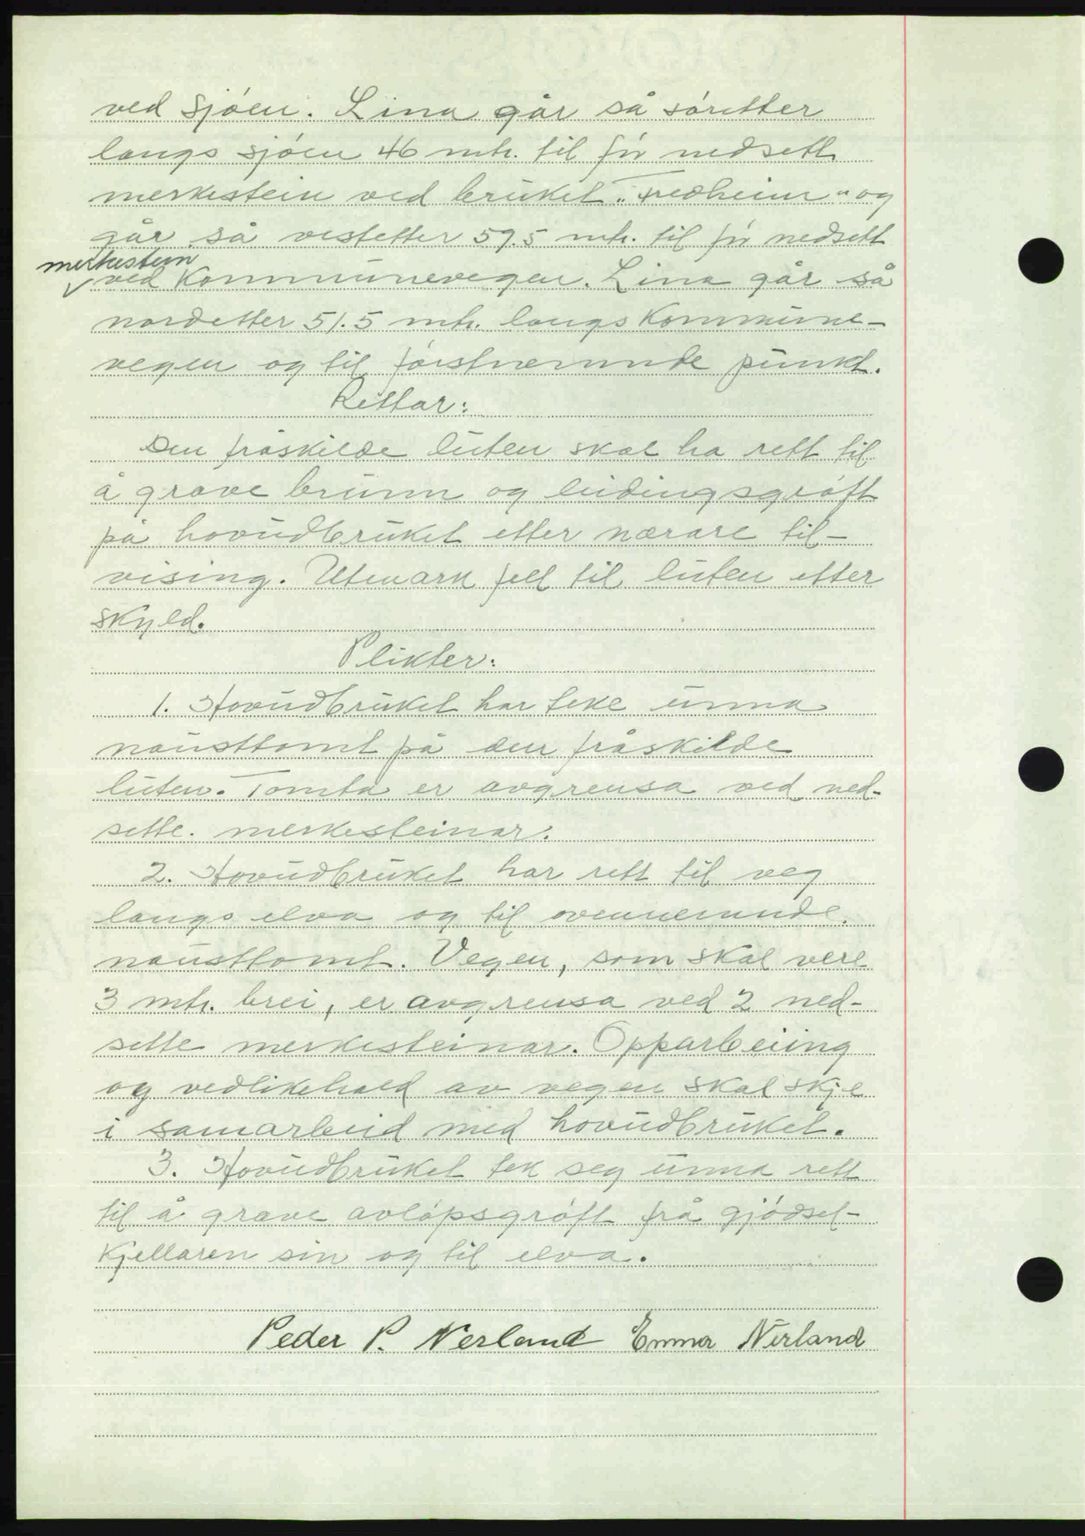 ved sjøen. Lina går så søretter
langs sjøen 46 mtr. til fr nedsett
merkestein ved bruket "Fredheim" og
går så vestetter 59.5 mtr. til fr nedsett
merkestein
ved Kommunevegen. Lina går så
nordetter 51.5 mtr. langs Kommune-
vegen og til førstnemnde punkt.
Rettar:
Den fråskilde luten skal ha rett til
å grave brunn og leidingsgrøft
på hovudbruket etter nærare til-
vising. Utmark fell til luten etter
skyld.
Plikter:
1. Hovudbruket har teke unna
nausttomt på den fråskilde
luten. Tomta er avgrensa ved ned-
sette merkesteinar.
2. Hovudbruket har rett til veg
langs elva og til ovennemnde
nausttomt. Vegen, som skal vere
3 mtr. brei, er avgrensa ved 2 ned-
sette merkesteinar. Opparbeiing
og vedlikehald av vegen skal skje
i samarbeid med hovudbruket.
3. Hovudbruket tek seg unna rett
til å grave avløpsgrøft frå gjødsel-
kjellaren sin og til elva.
Peder P. Nerland Emma Nerland